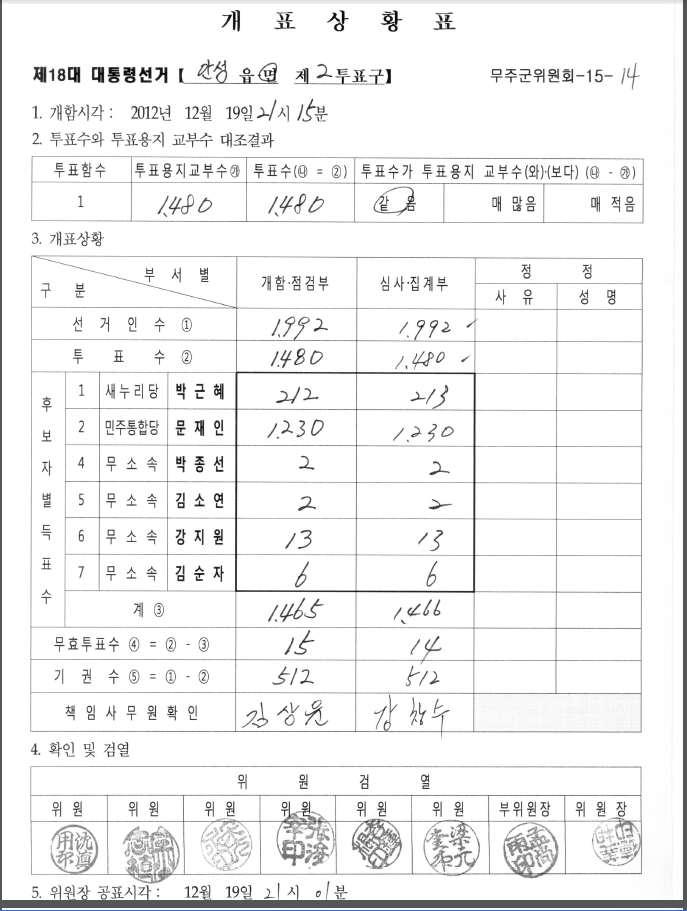 개 표 상 황 표
제18대 대통령선거 【 안성 읍 면 제 2 투표구】 무주군위원회-15-14
1. 개함시각 : 2012년 12월 19일 21시 15분
2. 투표수와 투표용지 교부수 대조결과
투표함수 투표용지교부수㉮ 투표수(㉯ = ②) 투표수가 투표용지 교부수(와)·(보다) (㉯ - ㉮)
1 1,480 1,480 같 음 매 많음 매 적음
3. 개표상황
구 분 부 서 별 개함·점검부 심사·집계부 정 정
사 유 성 명
선 거 인 수 ① 1,992 1,992
투 표 수 ② 1,480 1,480
후보자별득표수
1 새누리당 박근혜 212 213
2 민주통합당 문재인 1,230 1,230
4 무소속 박종선 2 2
5 무소속 김소연 2 2
6 무소속 강지원 13 13
7 무소속 김순자 6 6
계 ③ 1,465 1,466
무효투표수 ④ = ② - ③ 15 14
기 권 수 ⑤ = ① - ② 512 512
책임사무원확인 김상윤 강창수
4. 확인 및 검열
위 원 검 열
위 원 위 원 위 원 위 원 위 원 위 원 부위원장 위 원 장
5. 위원장 공표시각 : 12월 19일 21시 01분